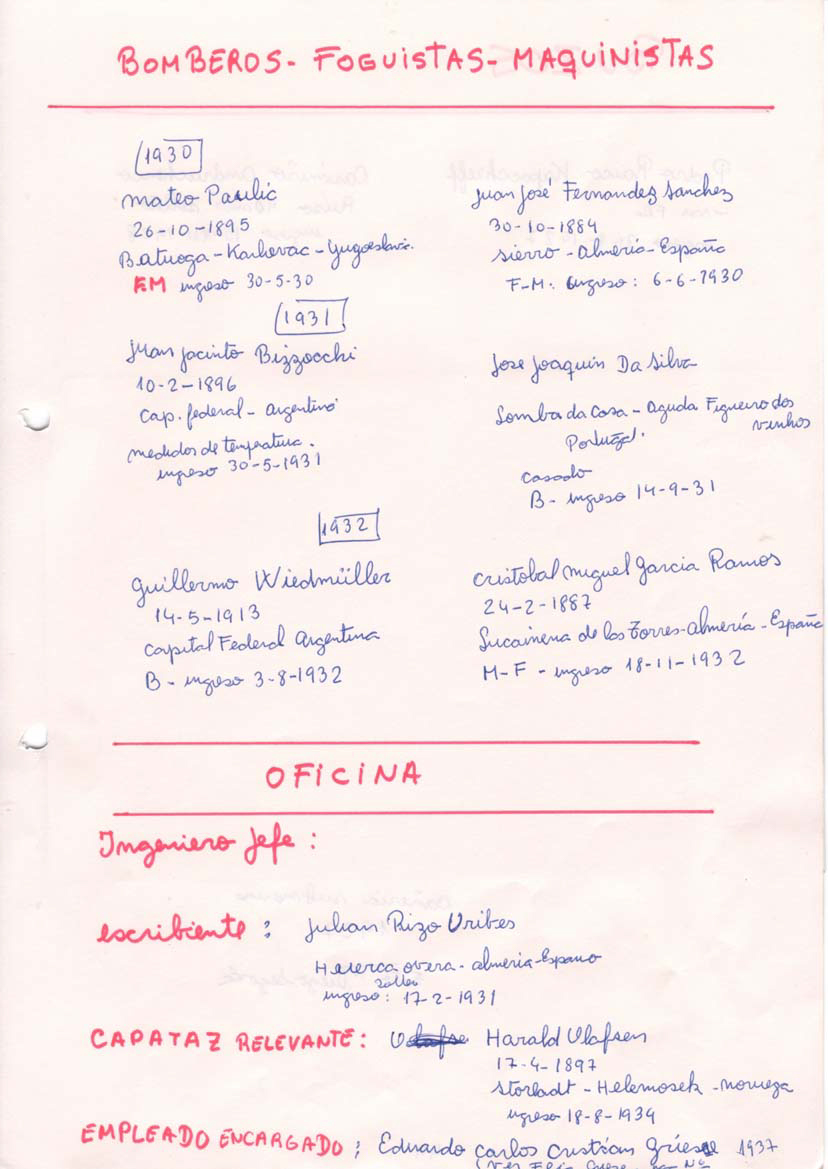 BOMBEROS - FOGUISTAS - MAQUINISTAS
1930
Mateo Paulic
26-10-1895
Batuoga - Karlovac - Yugoeslavia.
FM ingreso 30-5-30
Juan José Fernandez Sanchez
30-10-1884
Sierro - Almeria - España
F-M. ingreso: 6-6-1930
1931
Juan Jacinto Bizzocchi
10-2-1896
Cap. federal - Argentino
medidos de temperatura.
ingreso 30-5-1931
Jose Joaquin Da Silva
Lomba da Casa - Aguda Figueiro dos
vinhos
Portugal.
casado
B - ingreso 14-9-31
1932
Guillermo Wiedmüller
14-5-1913
Capital Federal Argentina
B - ingreso 3-8-1932
Cristobal Miguel Garcia Ramos
24-2-1887
Lucainena de las Torres - Almería - España
M-F - ingreso 18-11-1932
OFICINA
Ingeniero Jefe:
escribiente: Julian Rizo Uribes
Huercaovera - Almeria - España
ingreso: 17-2-1931
CAPATAZ RELEVANTE: Harald Olafsen
17-4-1897
Storladt - Helemosek - Noruega
ingreso 18-8-1934
EMPLEADO ENCARGADO: Eduardo Carlos Cristian Griese 1937